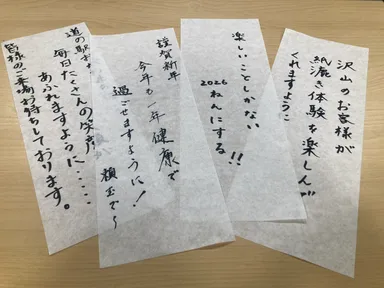 沢山のお客様が
紙漉き体験を楽しんで
くれますように
楽しいことしかない
2026
ねんにする!!
謹賀新年
今年も一年健康で
過ごせますように!
道の駅が
毎日たくさんの笑顔で
あふれますように・・・・
皆様のご来場お待ちしております。